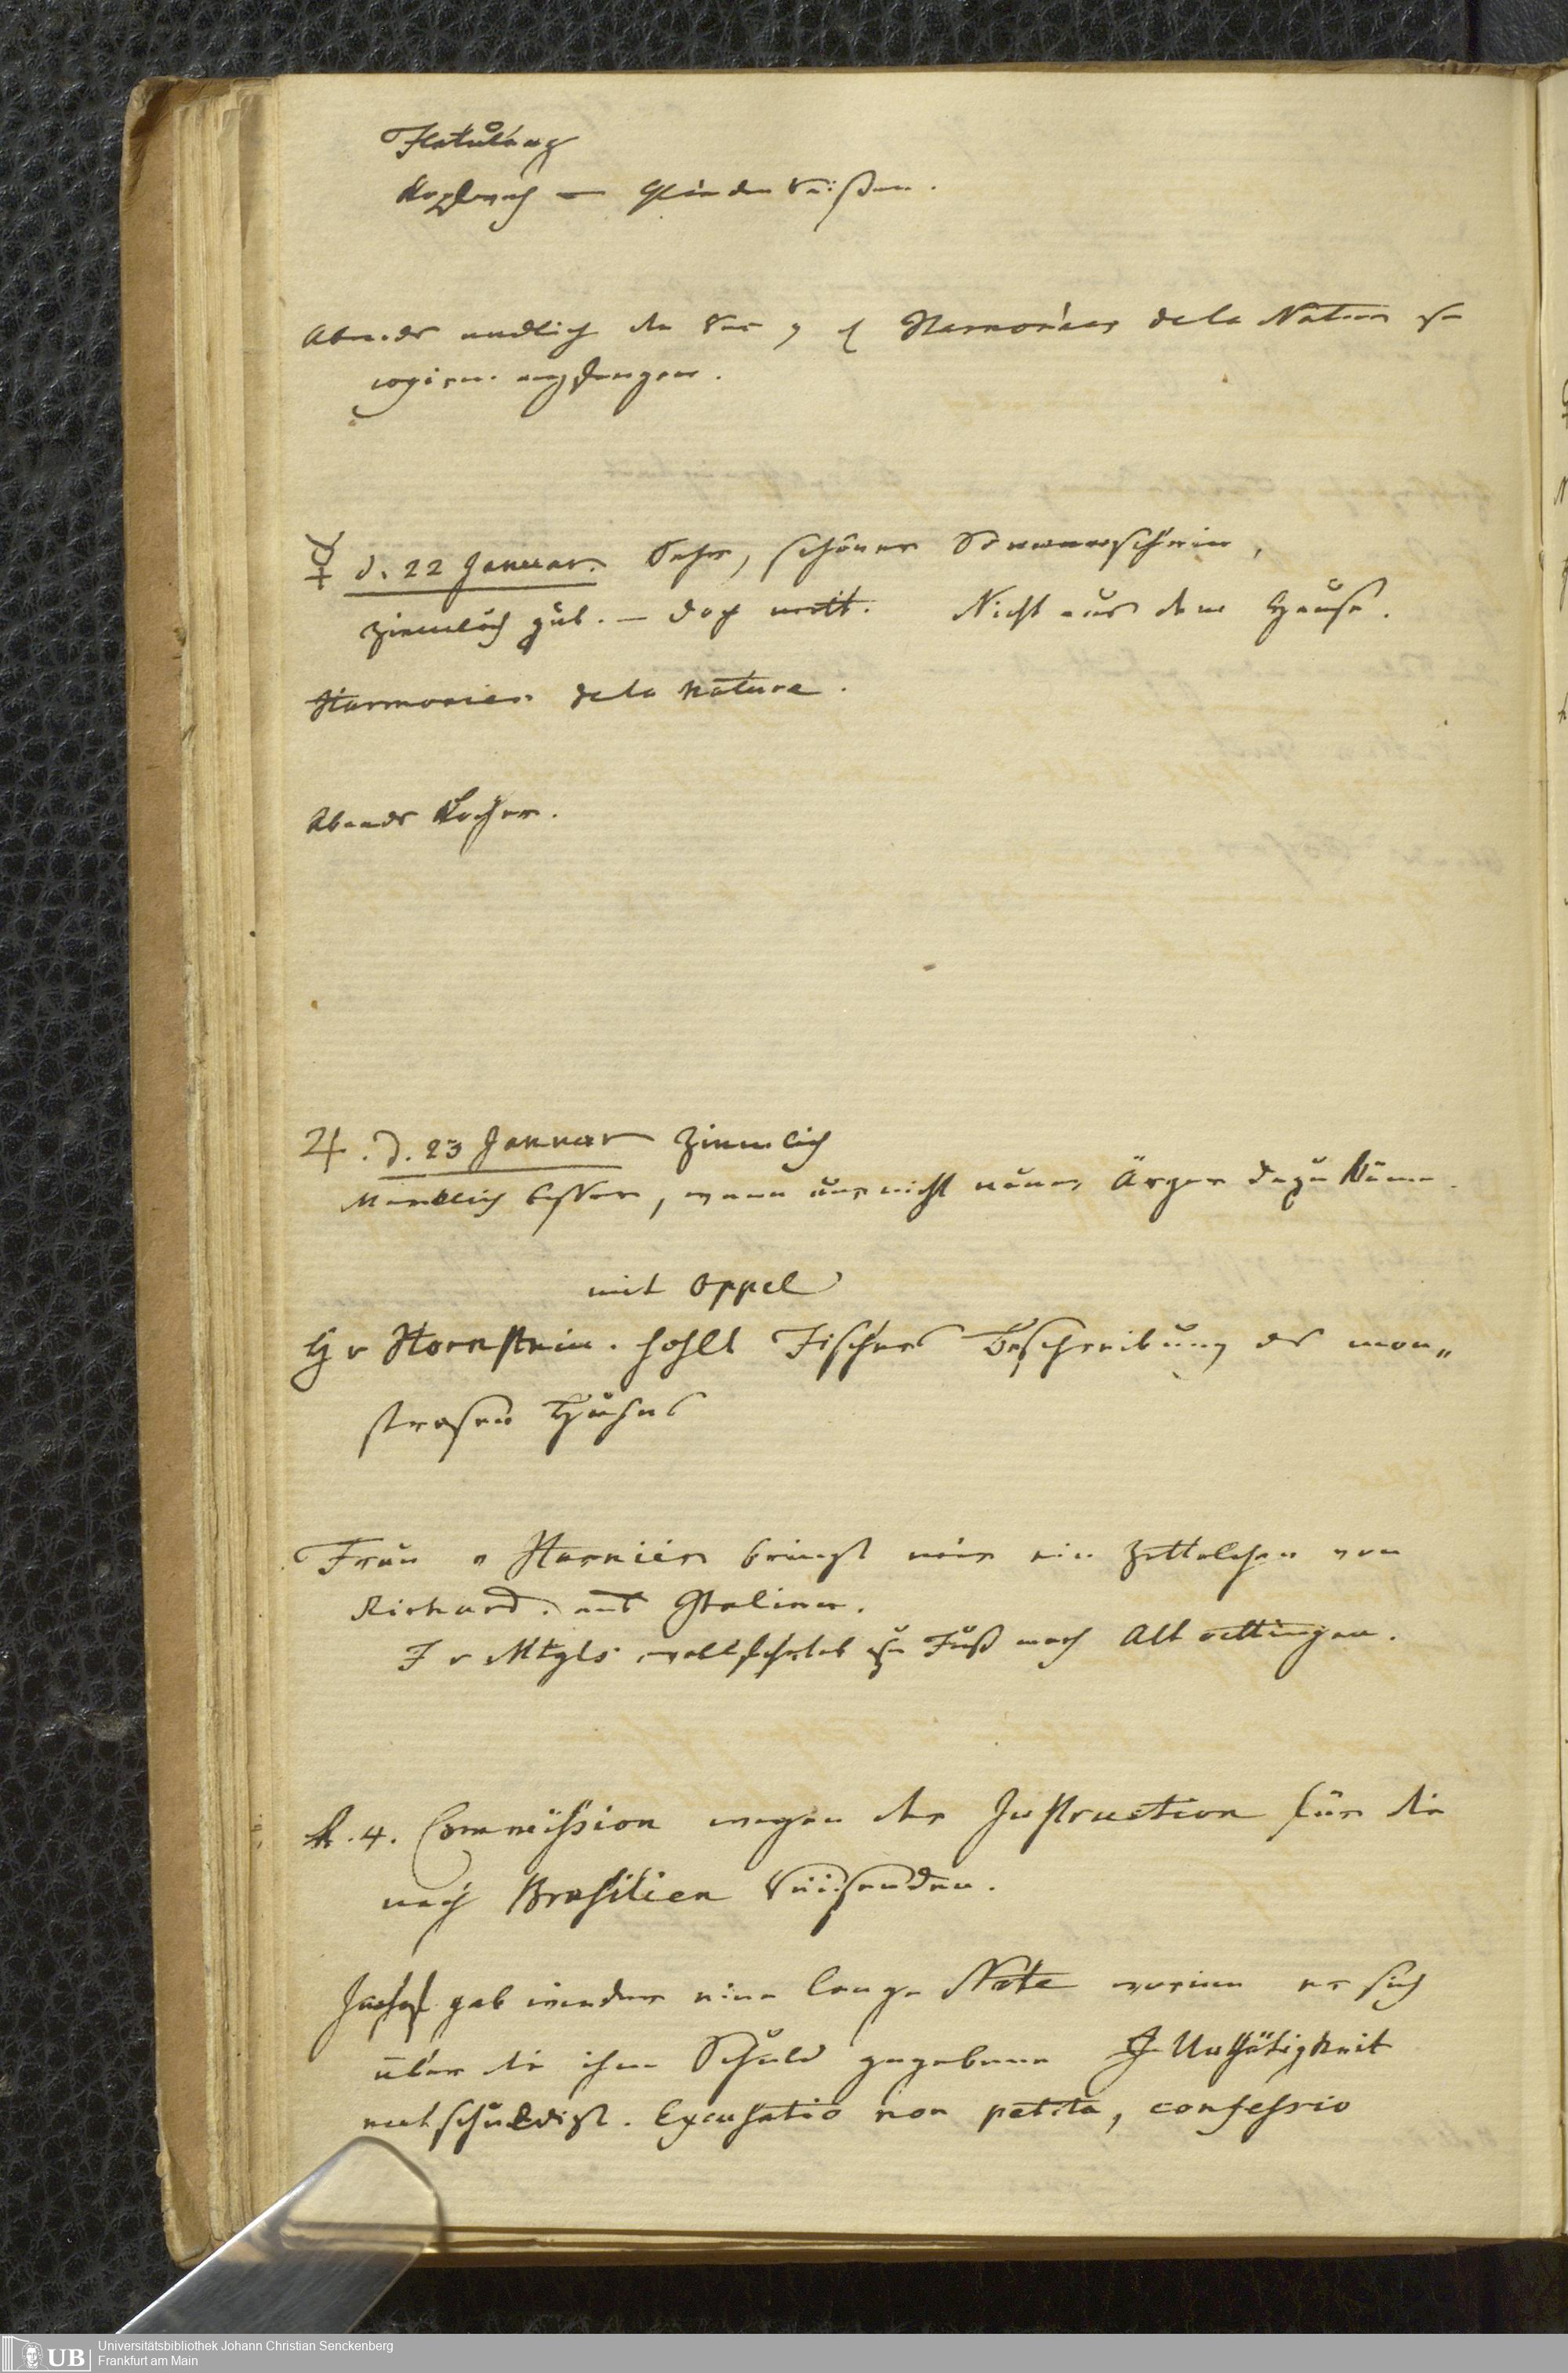 Flatulenz
Kopfweh — Gliederreißen.
Abends endlich die Harmonies de la Nature zu
angefangen.
☿ d. 22 Januar. Sehr, schöner Sonnenschein,
ziemlich gut. — doch matt. Nicht aus dem Hause.
Harmonies de la Nature.
Abends Kocher.
♃. d. 23 Januar ziemlich
Merklich besser, wenn nur nicht neuer Ärger dazu käme.
mit Oppel
H v Hornstein. hohlt Fischers Beschreibung des mon„
strosen Huhns
Frau v Harnier bringt mir ein Zettelchen von
Richard. aus Italien.
F v Mtgls wallfahrtet zu Fuß nach Alt oettingen.
h. 4. Commission wegen der Instruction für die
nach Brasilien Reisenden.
gab wieder eine lange Note worinn er sich
über die ihm Schuld gegebene Unthätigkeit
entschuldigt. Excusatio non petita, confessio
UB Universitätsbibliothek Johann Christian Senckenberg
Frankfurt am Main